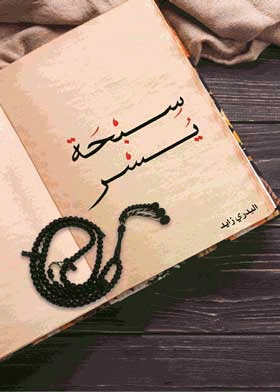 سِبْحَة
يُسْر
البدري زايد